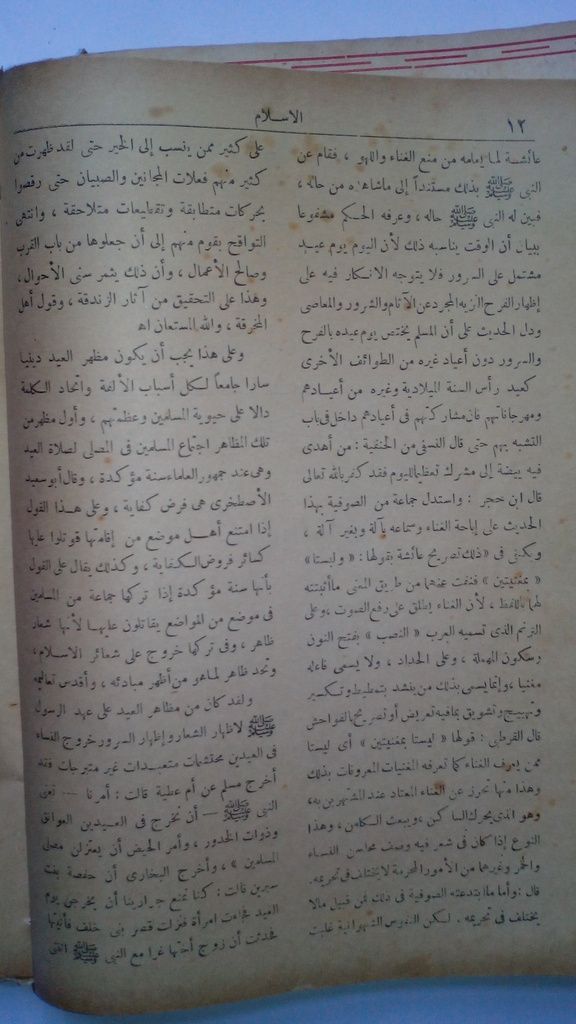 ١٢
الاسلام
عائشة لما يعلمه من منع الغناء واللهو ، فقام عن
النبي ﷺ بذلك مستنداً إلى ماشاهده من حاله ،
فبين له النبي ﷺ حاله ، وعرفه الحكم مشفوعا
ببيان أن الوقت يناسبه ذلك لأن اليوم يوم عيد
مشتمل على السرور فلا يتوجه الانكار فيه على
إظهار الفرح النزيه المجرد عن الآثام والشرور والمعاصى
ودل الحديث على أن المسلم يختص يوم عيده بالفرح
والسرور دون أعياد غيره من الطوائف الأخرى
كعيد رأس السنة الميلادية وغيره من أعيادهم
ومهرجاناتهم فان مشاركتهم فى أعيادهم داخل فى باب
التشبه بهم حتى قال النسفى من الحنفية : من أهدى
فيه بيضة إلى مشرك تعظيما لليوم فقد كفر بالله تعالى
قال ابن حجر : واستدل جماعة من الصوفية بهذا
الحديث على إباحة الغناء وسماعه بآلة وبغير آلة ،
ويكفى فى ذلك تصريح عائشة بقولها : « وليستا »
« بمغنيتين » فنفت عنهما من طريق المعنى ماأثبتته
لهما باللفظ ، لأن الغناء يطلق على رفع الصوت ، وعلى
الترنم الذى تسميه العرب « النصب » بفتح النون
وسكون المهملة ، وعلى الحداء ، ولا يسمى فاعله
مغنيا ، وإنما يسمى بذلك من ينشد بتمطيط وتكسير
وتهييج وتشويق بمافيه تعريض أو تصريح بالفواحش
قال القرطبى : قولها « ليستا بمغنيتين » أى ليستا
ممن يعرف الغناء كما تعرفه المغنيات المعروفات بذلك
وهذا منها تحرز عن الغناء المعتاد عند المشتهرين به ،
وهو الذى يحرك الساكن ، ويبعث الكامن ، وهذا
النوع إذا كان فى شعر فيه وصف محاسن النساء
والخمر وغيرهما من الأمور المحرمة لايختلف فى تحريمه .
قال : وأما ماابتدعته الصوفية فى ذلك فمن قبيل مالا
يختلف فى تحريمه . لكن النفوس الشهوانية غلبت
على كثير ممن ينسب إلى الخير حتى لقد ظهرت من
كثير منهم فعلات المجانين والصبيان حتى رقصوا
بحركات متطابقة وتقطيعات متلاحقة ، وانتهى
التواقح بقوم منهم إلى أن جعلوها من باب القرب
وصالح الأعمال ، وأن ذلك يثمر سنى الأحوال ،
وهذا على التحقيق من آثار الزندقة ، وقول أهل
المخرفة ، والله المستعان اه
وعلى هذا يجب أن يكون مظهر العيد دينيا
سارا جامعاً لكل أسباب الألفة واتحاد الكلمة
دالا على حيوية المسلمين وعظمتهم ، وأول مظهر من
تلك المظاهر اجتماع المسلمين فى المصلى لصلاة العيد
وهى عند جمهور العلماء سنة مؤكدة ، وقال أبو سعيد
الأصطخرى هى فرض كفاية ، وعلى هذا القول
إذا امتنع أهل موضع من إقامتها قوتلوا عليها
كسائر فروض الكفاية ، وكذلك يقال على القول
بأنها سنة مؤكدة إذا تركها جماعة من المسلمين
فى موضع من المواضع يقاتلون عليها لأنها شعار
ظاهر ، وفى تركها خروج على شعائر الاسلام ،
وتحد ظاهر لما هو من أظهر مبادئه ، وأقدس تعاليمه
ولقد كان من مظاهر العيد على عهد الرسول
ﷺ لاظهار الشعار وإظهار السرور خروج النساء
فى العيدين محتشمات متعبدات غير متبرجات فقد
أخرج مسلم عن أم عطية قالت : أمرنا — تعنى
النبى ﷺ — أن نخرج فى العيدين العواتق
وذوات الخدور ، وأمر الحيض أن يعتزلن مصلى
المسلمين » ، وأخرج البخارى أن حفصة بنت
سيرين قالت : كنا نمنع جوارينا أن يخرجن يوم
العيد فجاءت امرأة فنزلت قصر بنى خلف فأتيتها
فحدثت أن زوج أختها غزا مع النبى ﷺ اثنتى